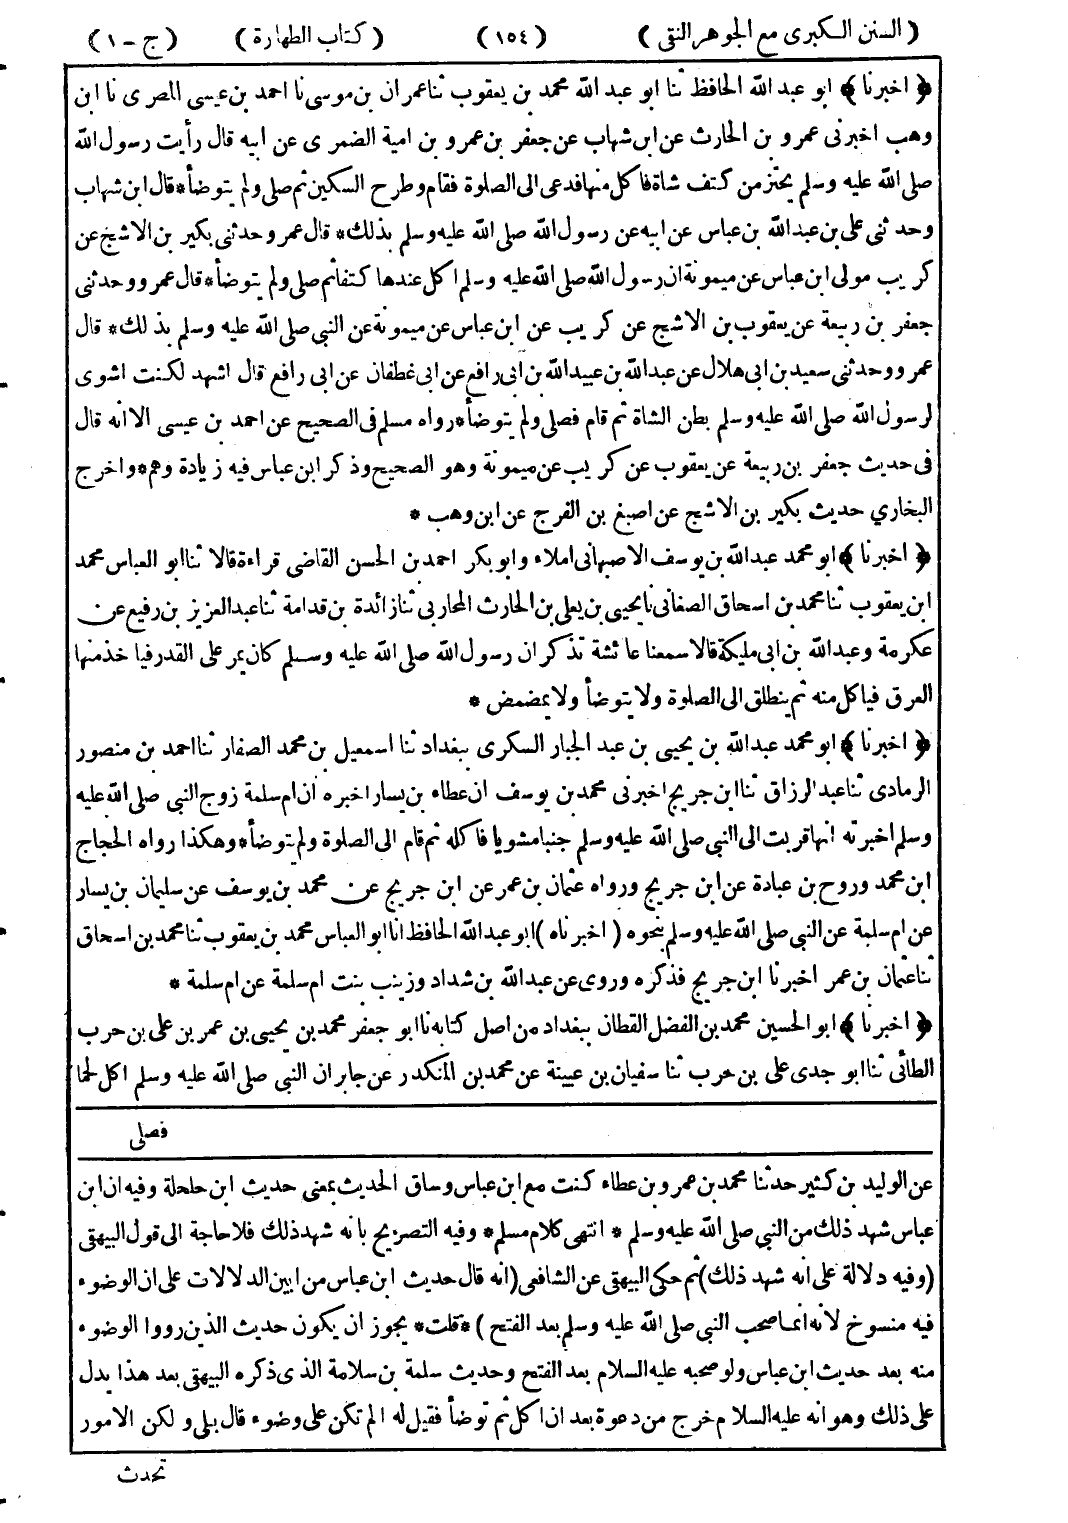 ( السنن الكبرى مع الجوهر النقى ) (١٥٤) ( كتاب الطهارة ) ( ج - ١ )
﴿ اخبرنا ﴾ ابو عبد الله الحافظ ثنا ابو عبد الله محمد بن يعقوب ثنا عمران بن موسى نا احمد بن عيسى المصرى نا ابن
وهب اخبرنى عمرو بن الحارث عن ابن شهاب عن جعفر بن عمرو بن امية الضمرى عن ابيه قال رأيت رسول الله
صلى الله عليه وسلم يحتز من كتف شاة فاكل منها فدعى الى الصلوة فقام وطرح السكين ثم صلى ولم يتوضأ * قال ابن شهاب
وحدثنى على بن عبدالله بن عباس عن ابيه عن رسول الله صلى الله عليه وسلم بذلك * قال عمر وحدثنى بكير بن الاشج عن
كريب مولى ابن عباس عن ميمونة ان رسول الله صلى الله عليه وسلم اكل عندها كتفا ثم صلى ولم يتوضأ * قال عمر ووحدثنى
جعفر بن ربيعة عن يعقوب بن الاشج عن كريب عن ابن عباس عن ميمونة عن النبى صلى الله عليه وسلم بذلك * قال
عمرو وحدثنى سعيد بن ابى هلال عن عبدالله بن عبيدالله بن ابى رافع عن ابى غطفان عن ابى رافع قال اشهد لكنت اشوى
لرسول الله صلى الله عليه وسلم بطن الشاة ثم قام فصلى ولم يتوضأ * رواه مسلم فى الصحيح عن احمد بن عيسى الا انه قال
فى حديث جعفر بن ربيعة عن يعقوب عن كريب عن ميمونة وهو الصحيح وذكر ابن عباس فيه زيادة وهم * واخرج
البخاري حديث بكير بن الاشج عن اصبغ بن الفرج عن ابن وهب *
﴿ اخبرنا ﴾ ابو محمد عبدالله بن يوسف الاصبهانى املاء وابو بكر احمد بن الحسن القاضى قراءة قالا ثنا ابو العباس محمد
ابن يعقوب ثنا محمد بن اسحاق الصغانى نا يحيى بن يعلى بن الحارث المحاربى ثنا زائدة بن قدامة ثنا عبدالعزيز بن رفيع عن
عكرمة وعبدالله بن ابى مليكة قالا سمعنا عائشة تذكر ان رسول الله صلى الله عليه وسلم كان يمر على القدر فيأخذ منها
العرق فياكل منه ثم ينطلق الى الصلوة ولا يتوضأ ولا يمضمض *
﴿ اخبرنا ﴾ ابو محمد عبدالله بن يحيى بن عبد الجبار السكرى ببغداد ثنا اسمعيل بن محمد الصفار ثنا احمد بن منصور
الرمادى ثنا عبدالرزاق ثنا ابن جريج اخبرنى محمد بن يوسف ان عطاء بن يسار اخبره ان ام سلمة زوج النبى صلى الله عليه
وسلم اخبرته انها قربت الى النبى صلى الله عليه وسلم جنبا مشويا فاكله ثم قام الى الصلوة ولم يتوضأ * وهكذا رواه الحجاج
ابن محمد وروح بن عبادة عن ابن جريج ورواه عثمان بن عمر عن ابن جريج عن محمد بن يوسف عن سليمان بن يسار
عن ام سلمة عن النبى صلى الله عليه وسلم بنحوه ( اخبرناه ) ابو عبدالله الحافظ انا ابو العباس محمد بن يعقوب ثنا محمد بن اسحاق
ثنا عثمان بن عمر اخبرنا ابن جريج فذكره وروى عن عبدالله بن شداد وزينب بنت ام سلمة عن ام سلمة *
﴿ اخبرنا ﴾ ابو الحسين محمد بن الفضل القطان ببغداد من اصل كتابه نا ابو جعفر محمد بن يحيى بن عمر بن على بن حرب
الطائى ثنا ابو جدى على بن حرب ثنا سفيان بن عيينة عن محمد بن المنكدر عن جابر ان النبى صلى الله عليه وسلم اكل لحما
فصلى
عن الوليد بن كثير حدثنا محمد بن عمرو بن عطاء كنت مع ابن عباس وساق الحديث بمعنى حديث ابن حلحلة وفيه ان ابن
عباس شهد ذلك من النبى صلى الله عليه وسلم * انتهى كلام مسلم * وفيه التصريح بانه شهد ذلك فلا حاجة الى قول البيهقى
(وفيه دلالة على انه شهد ذلك) ثم حكى البيهقى عن الشافعى (انه قال حديث ابن عباس من ابين الدلالات على ان الوضوء
فيه منسوخ لانه انما صحب النبى صلى الله عليه وسلم بعد الفتح ) * قلت * يجوز ان يكون حديث الذين رووا الوضوء
منه بعد حديث ابن عباس ولو صحبه عليه السلام بعد الفتح وحديث سلمة بن سلامة الذى ذكره البيهقى بعد هذا يدل
على ذلك وهو انه عليه السلام خرج من دعوة بعد ان اكل ثم توضأ فقيل له الم تكن على وضوء قال بلى ولكن الامور
تحدث